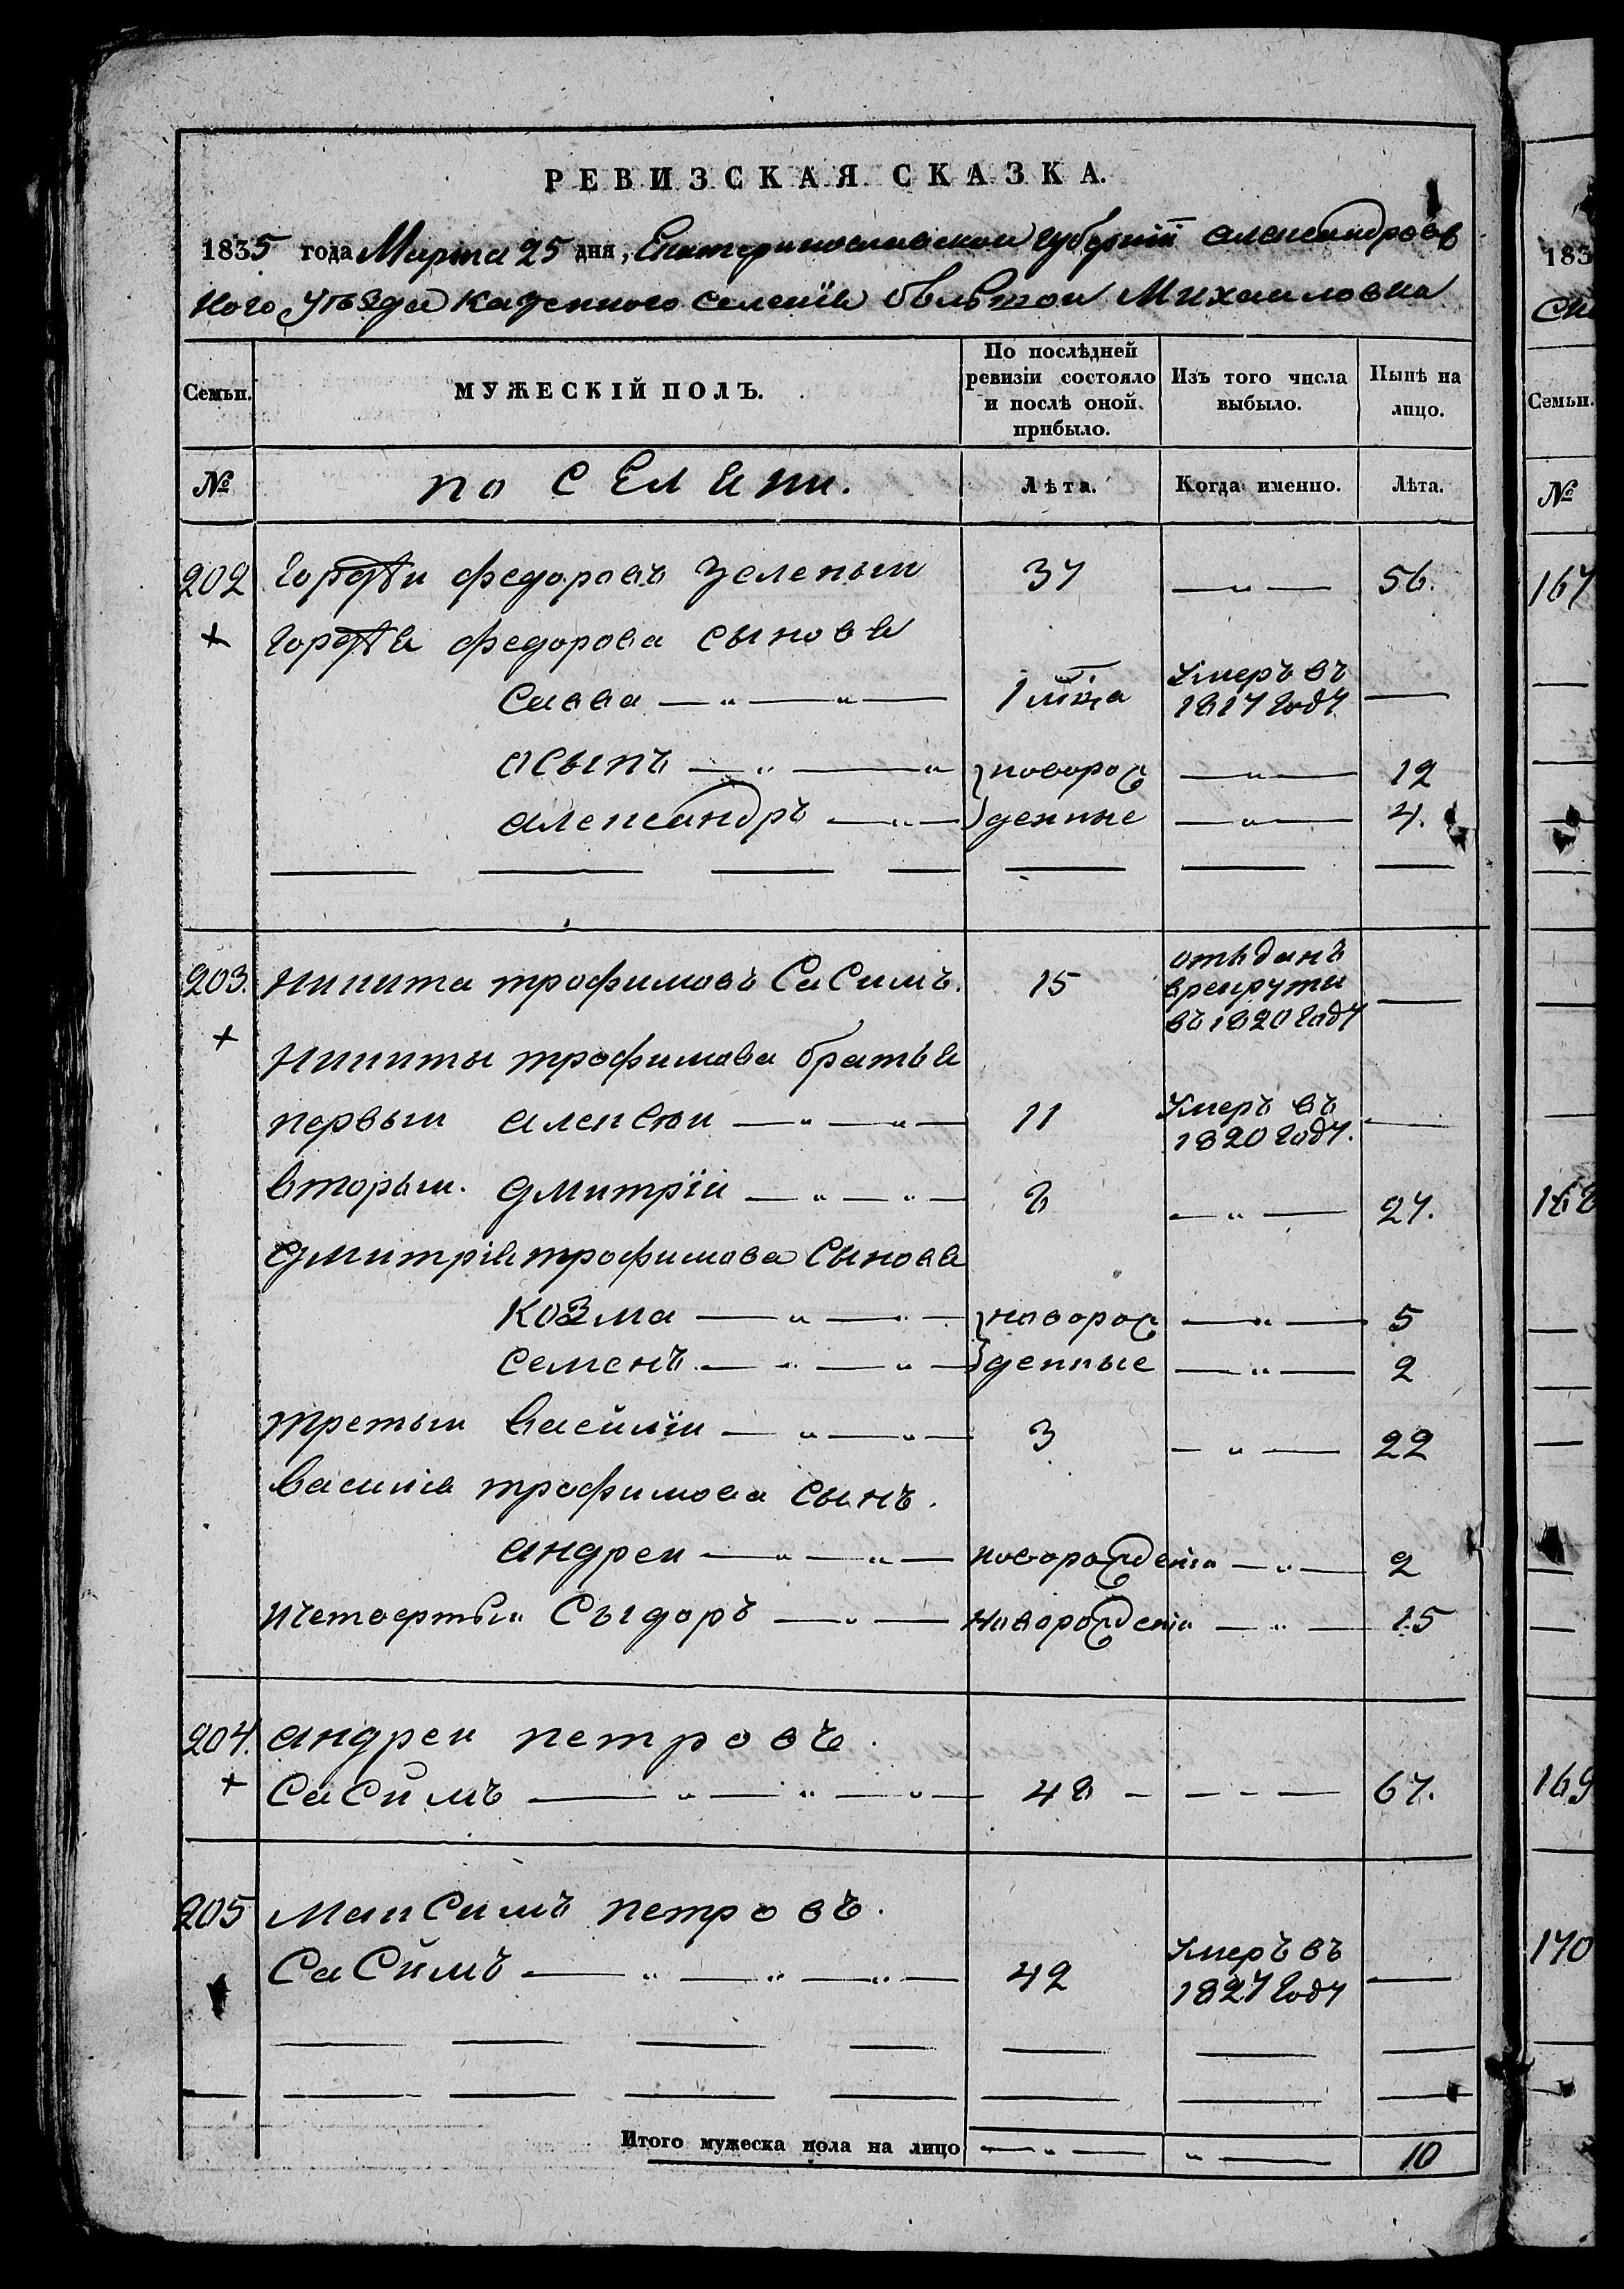 РЕВИЗСКАЯ СКАЗКА.
1835 года Марта 25 дня, Екатеринославской губернiи александров
ного уѣзда казенного селенiя болшой Михаиловки
Семьи. МУЖЕСКIЙ ПОЛЪ. По послѣдней ревизiи состояло и послѣ оной прибыло. Изъ того числа выбыло. Нынѣ на лицо.
№ поселяни. Лѣта. Когда именно. Лѣта.
202 Гордѣи федоровъ зеленыи 37 — „ — 56.
+ Гордѣя федорова сыновя
Савва — „ — „ — 1 мца Умеръ въ 1817 году —
асыпъ — „ — „ новорож — „ — 12
александръ — „ — денные — „ — 4.
203. никита трофимовъ Сасимъ. 15 отъданъ врекруты въ 1820 году —
+ никиты трофимова братья
первыи алексѣи — „ — „ — 11 Умеръ въ 1820 году. —
вторыи. дмитрїи — „ — „ — 8 — „ — 27.
дмитрiя трофимова сыновя
Козма — „ — „ — новорож — „ — 5
семенъ — „ — „ — денные — „ — 2
третыи василiи — „ — „ — 3 — „ — 22
василiя трофимова сынъ.
андреи — „ — „ — новорожденiи — „ — 2
четвертыи Сыдоръ — „ — новорожденiи — „ — 15
204. андреи петровъ.
+ Сасимъ — „ — „ — „ — 48 — — - — 67.
205 максимъ петровъ.
Сасимъ — „ — „ — „ — 42 Умеръ въ 1827 году —
Итого мужеска пола на лицо — „ — „ — 10
183
Семьи.
№
167
168
169
170